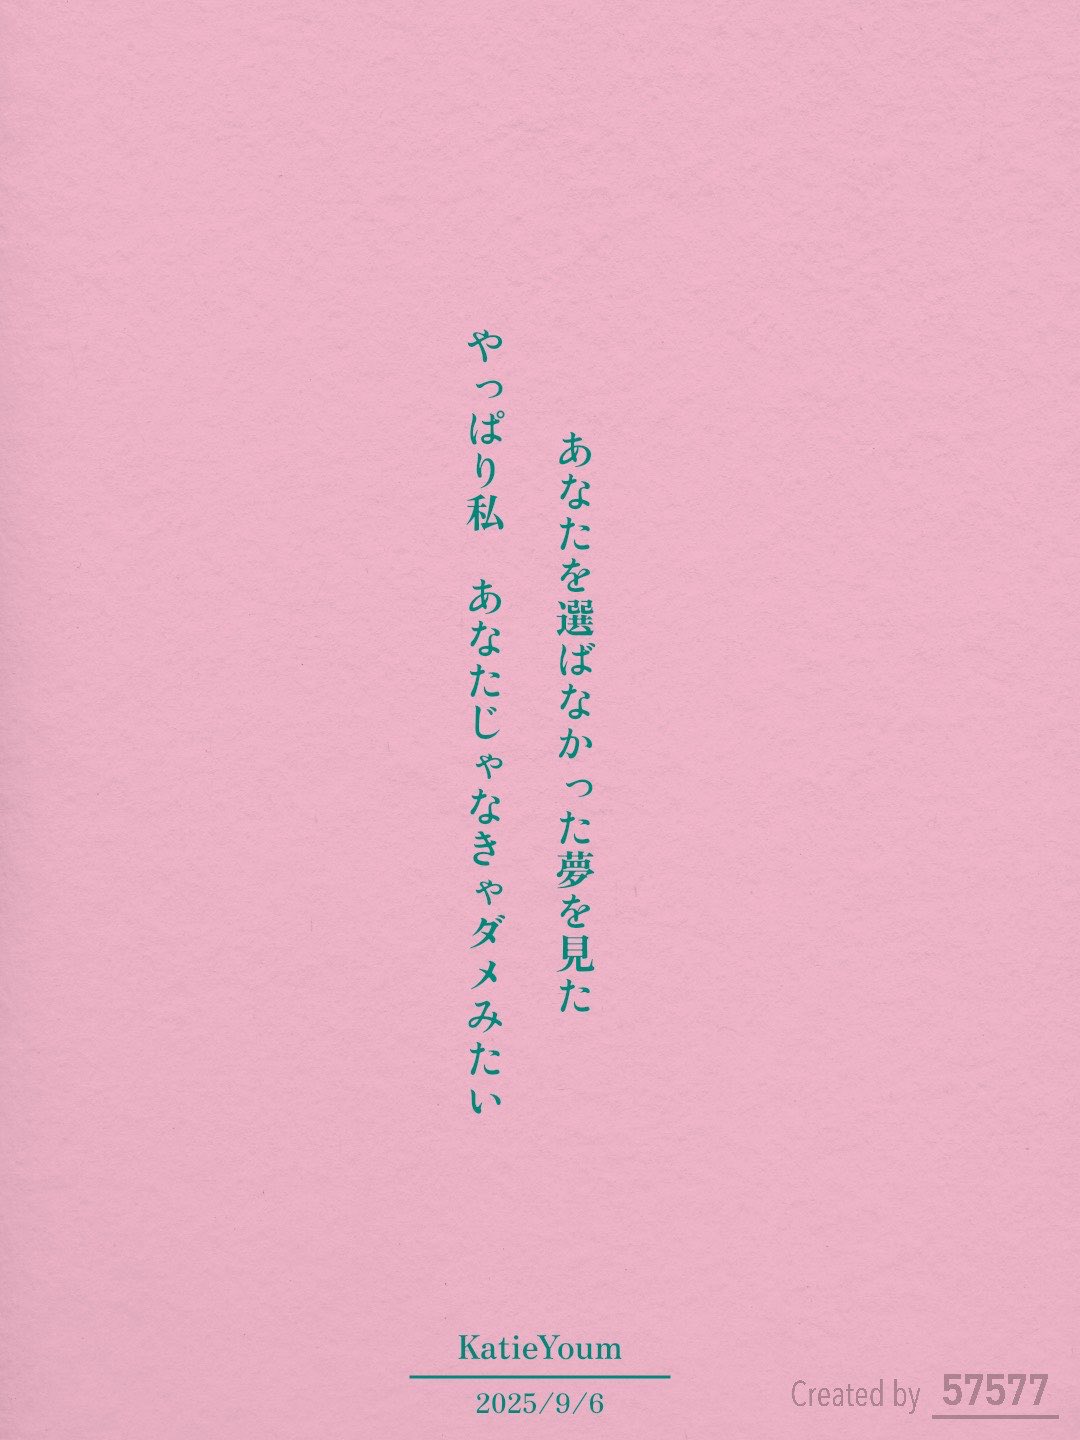 あなたを選ばなかった夢を見た
やっぱり私　あなたじゃなきゃダメみたい
KatieYoum
2025/9/6
Created by 57577